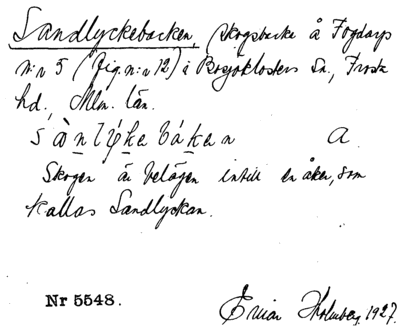 Sandlyckebacken, skogsbacke å Fogdarp
n:r 5 (fig. n:r 12) i Bosjöklosters Sn., Frosta
hd., Mlm. län.
sànlykebáken A.
Skogen är belägen intill en åker, som
kallas Sandlyckan.
Nr 5548. Einar Holmberg. 1927.